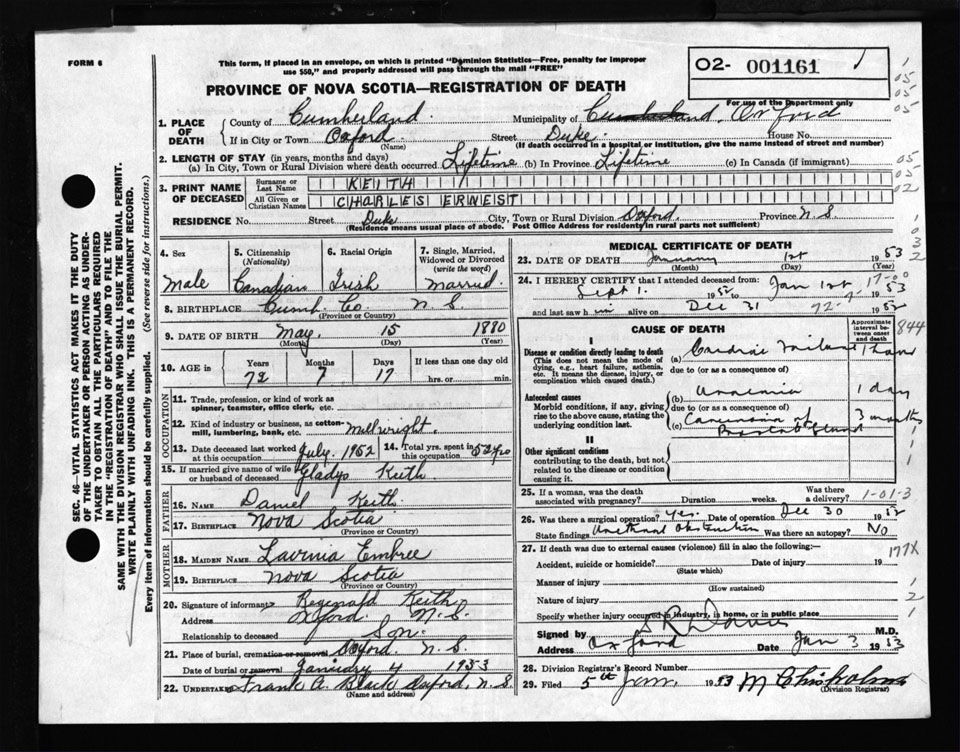 FORM 6
This form, if placed in an envelope, on which is printed "Dominion Statistics—Free, penalty for improper
use $50," and properly addressed will pass through the mail "FREE"
O2- 001161
For use of the Department only
PROVINCE OF NOVA SCOTIA—REGISTRATION OF DEATH
1. PLACE OF DEATH
County of Cumberland. Municipality of Cumberland. Oxford
If in City or Town Oxford. Street Duke. House No.
(Name) (If death occurred in a hospital or institution, give the name instead of street and number)
2. LENGTH OF STAY (in years, months and days)
(a) In City, Town or Rural Division where death occurred Lifetime (b) In Province Lifetime (c) In Canada (if immigrant)
3. PRINT NAME OF DECEASED
Surname or Last Name KEITH
All Given or Christian Names CHARLES ERNEST
RESIDENCE No. Street Duke City, Town or Rural Division Oxford. Province N.S.
(Residence means usual place of abode. Post Office Address for residents in rural parts not sufficient)
4. Sex
Male
5. Citizenship (Nationality)
Canadian
6. Racial Origin
Irish
7. Single, Married, Widowed or Divorced (write the word)
Married.
8. BIRTHPLACE Cumb. Co. N.S.
(Province or Country)
9. DATE OF BIRTH May. 15 1880
(Month) (Day) (Year)
10. AGE in Years Months Days If less than one day old
72 7 17 hrs. or min.
OCCUPATION
11. Trade, profession, or kind of work as spinner, teamster, office clerk, etc.
12. Kind of industry or business, as cotton-mill, lumbering, bank, etc. Millwright.
13. Date deceased last worked at this occupation July. 1952 14. Total yrs. spent in this occupation 52 yrs
15. If married give name of wife or husband of deceased Gladys Keith
FATHER
16. NAME Daniel Keith
17. BIRTHPLACE Nova Scotia
(Province or Country)
MOTHER
18. MAIDEN NAME. Lavinia Embree
19. BIRTHPLACE Nova Scotia
(Province or Country)
20. Signature of informant Reginald Keith
Address Oxford. N.S.
Relationship to deceased Son.
21. Place of burial, cremation or removal Oxford. N.S.
Date of burial or removal January 4 1953
22. Undertaker Frank A. Black Oxford, N.S.
(Name and address)
MEDICAL CERTIFICATE OF DEATH
23. DATE OF DEATH January 1st 1953
(Month) (Day) (Year)
24. I HEREBY CERTIFY that I attended deceased from:
Sept 1. 1952 to Jan 1st 1953
and last saw him alive on Dec 31 1952
CAUSE OF DEATH
Approximate interval between onset and death
I
Disease or condition directly leading to death
(This does not mean the mode of dying, e.g., heart failure, asthenia, etc. It means the disease, injury, or complication which caused death.)
(a) Cardiac Failure 1 hour
due to (or as a consequence of)
Antecedent causes
Morbid conditions, if any, giving rise to the above cause, stating the underlying condition last.
(b) Uraemia 1 day
due to (or as a consequence of)
(c) Carcinoma of Prostate gland 3 months
II
Other significant conditions
contributing to the death, but not related to the disease or condition causing it.
25. If a woman, was the death associated with pregnancy? Duration weeks. Was there a delivery? 1-01-3
26. Was there a surgical operation? Yes. Date of operation Dec 30 1952
State findings Urethral Obstruction Was there an autopsy? No
27. If death was due to external causes (violence) fill in also the following:—
Accident, suicide or homicide? Date of injury 19
(State which)
Manner of injury
(How sustained)
Nature of injury
Specify whether injury occurred in industry, in home, or in public place
Signed by Davies M.D.
Address Oxford Date Jan 3 1953
28. Division Registrar's Record Number
29. Filed 5th Jan. 1953 M Chisholm
(Division Registrar)
844
177X
SEC. 46—VITAL STATISTICS ACT MAKES IT THE DUTY
OF THE UNDERTAKER OR PERSON ACTING AS UNDER-
TAKER TO OBTAIN ALL THE PARTICULARS REQUIRED
IN THE "REGISTRATION OF DEATH" AND TO FILE THE
SAME WITH THE DIVISION REGISTRAR WHO SHALL ISSUE THE BURIAL PERMIT.
WRITE PLAINLY WITH UNFADING INK. THIS IS A PERMANENT RECORD.
Every item of information should be carefully supplied. (See reverse side for instructions.)